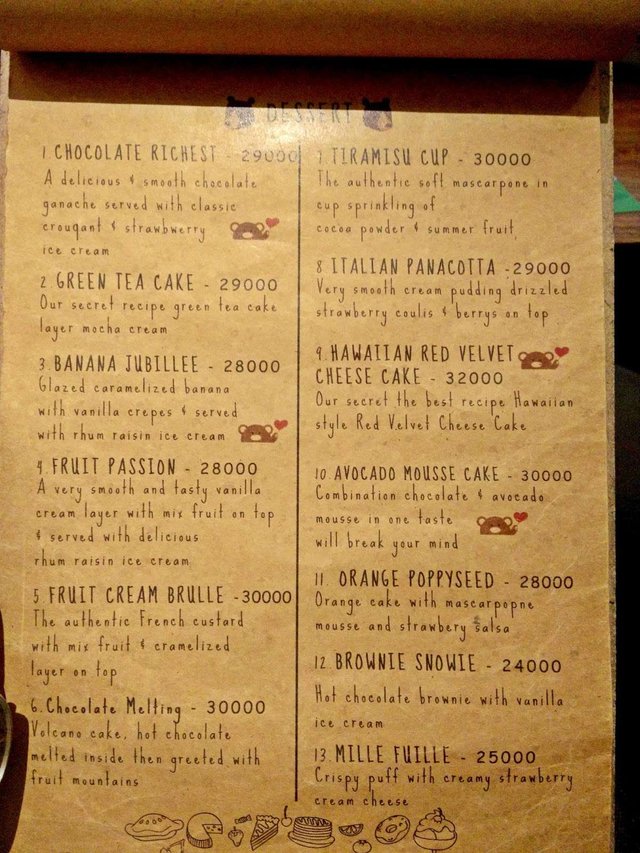 DESSERT
1. CHOCOLATE RICHEST - 29000
A delicious & smooth chocolate
ganache served with classic
crouqant & strawbwerry
ice cream
2. GREEN TEA CAKE - 29000
Our secret recipe green tea cake
layer mocha cream
3. BANANA JUBILLEE - 28000
Glazed caramelized banana
with vanilla crepes & served
with rhum raisin ice cream
4. FRUIT PASSION - 28000
A very smooth and tasty vanilla
cream layer with mix fruit on top
& served with delicious
rhum raisin ice cream
5. FRUIT CREAM BRULLE -30000
The authentic French custard
with mix fruit & cramelized
layer on top
6. Chocolate Melting - 30000
Volcano cake, hot chocolate
melted inside then greeted with
fruit mountains
7. TIRAMISU CUP - 30000
The authentic soft mascarpone in
cup sprinkling of
cocoa powder & summer fruit
8 ITALIAN PANACOTTA -29000
Very smooth cream pudding drizzled
strawberry coulis & berrys on top
9. HAWAIIAN RED VELVET
CHEESE CAKE - 32000
Our secret the best recipe Hawaiian
style Red Velvet Cheese Cake
10. AVOCADO MOUSSE CAKE - 30000
Combination chocolate & avocado
mousse in one taste
will break your mind
11. ORANGE POPPYSEED - 28000
Orange cake with mascarpopne
mousse and strawbery salsa
12. BROWNIE SNOWIE - 24000
Hot chocolate brownie with vanilla
ice cream
13. MILLE FUILLE - 25000
Crispy puff with creamy strawberry
cream cheese